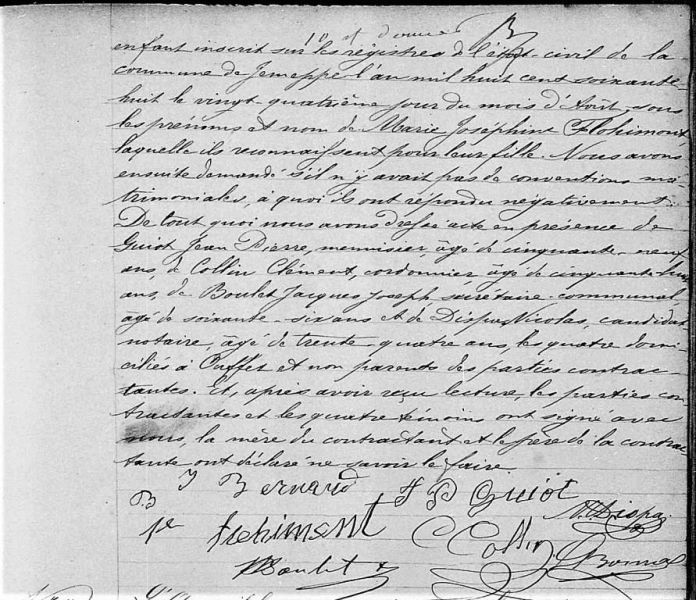 enfant inscrit sur les registres de l'état-civil de la
commune de Jemeppe l'an mil huit cent soixante-
huit le vingt-quatrième jour du mois d'Août, sous
les prénoms et nom de Marie Joséphine Flohimont,
laquelle ils reconnaissent pour leur fille. Nous avons
ensuite demandé s'il n'y avait pas de conventions ma-
trimoniales, à quoi ils ont répondu négativement.
De tout quoi nous avons dressé acte en présence de
Guiot Jean Pierre, menuisier, âgé de cinquante-neuf
ans, de Collin Clément, cordonnier, âgé de cinquante
ans, de Boulet Jacques Joseph, secrétaire communal
agé de soixante-six ans et de Dispa Nicolas, candidat
notaire, âgé de trente-quatre ans, les quatre domi-
ciliés à Ouffet et non parents des parties contrac-
tantes. Et, après avoir reçu lecture, les parties con-
tractantes et les quatre témoins ont signé avec
nous, la mère du contractant et le frère de la contrac
tante ont déclaré ne savoir le faire.
J Bernard J P Guiot
N. Dispa
Flohimont C Collin
Boulet